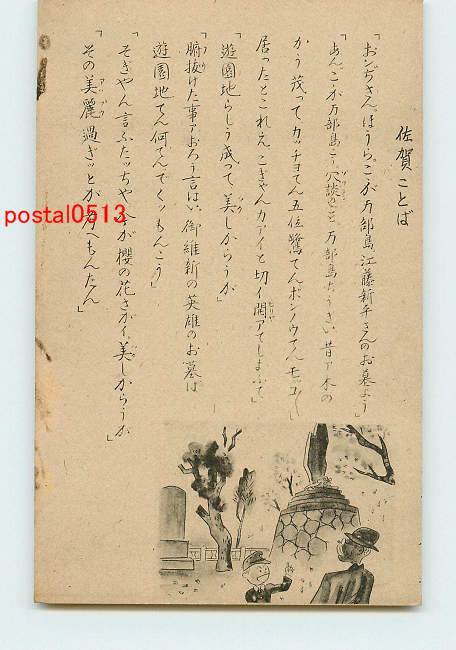 佐賀ことば
「おンぢさん、ほうら、こが万部島、江藤新平さんのお墓よう」
「あん、こが万部島こう、 万部島ちうぎい昔ァ木の
かう茂ってカッチョてん五位鷺てんポンノウてんモッコ
居ったとこれえ、こぎゃんカアイと切イ開アてしまふて」
「遊園地らしう成って、美しからうが」
「腑抜けた事アおろう言はい、御維新の英雄のお墓は
遊園地てん何てんでくッもんこう」
「そぎやん言ふたッちや、 が櫻の花さがイ、美しからうが」
「その美麗過ぎッとが へもんたん」
postal0513